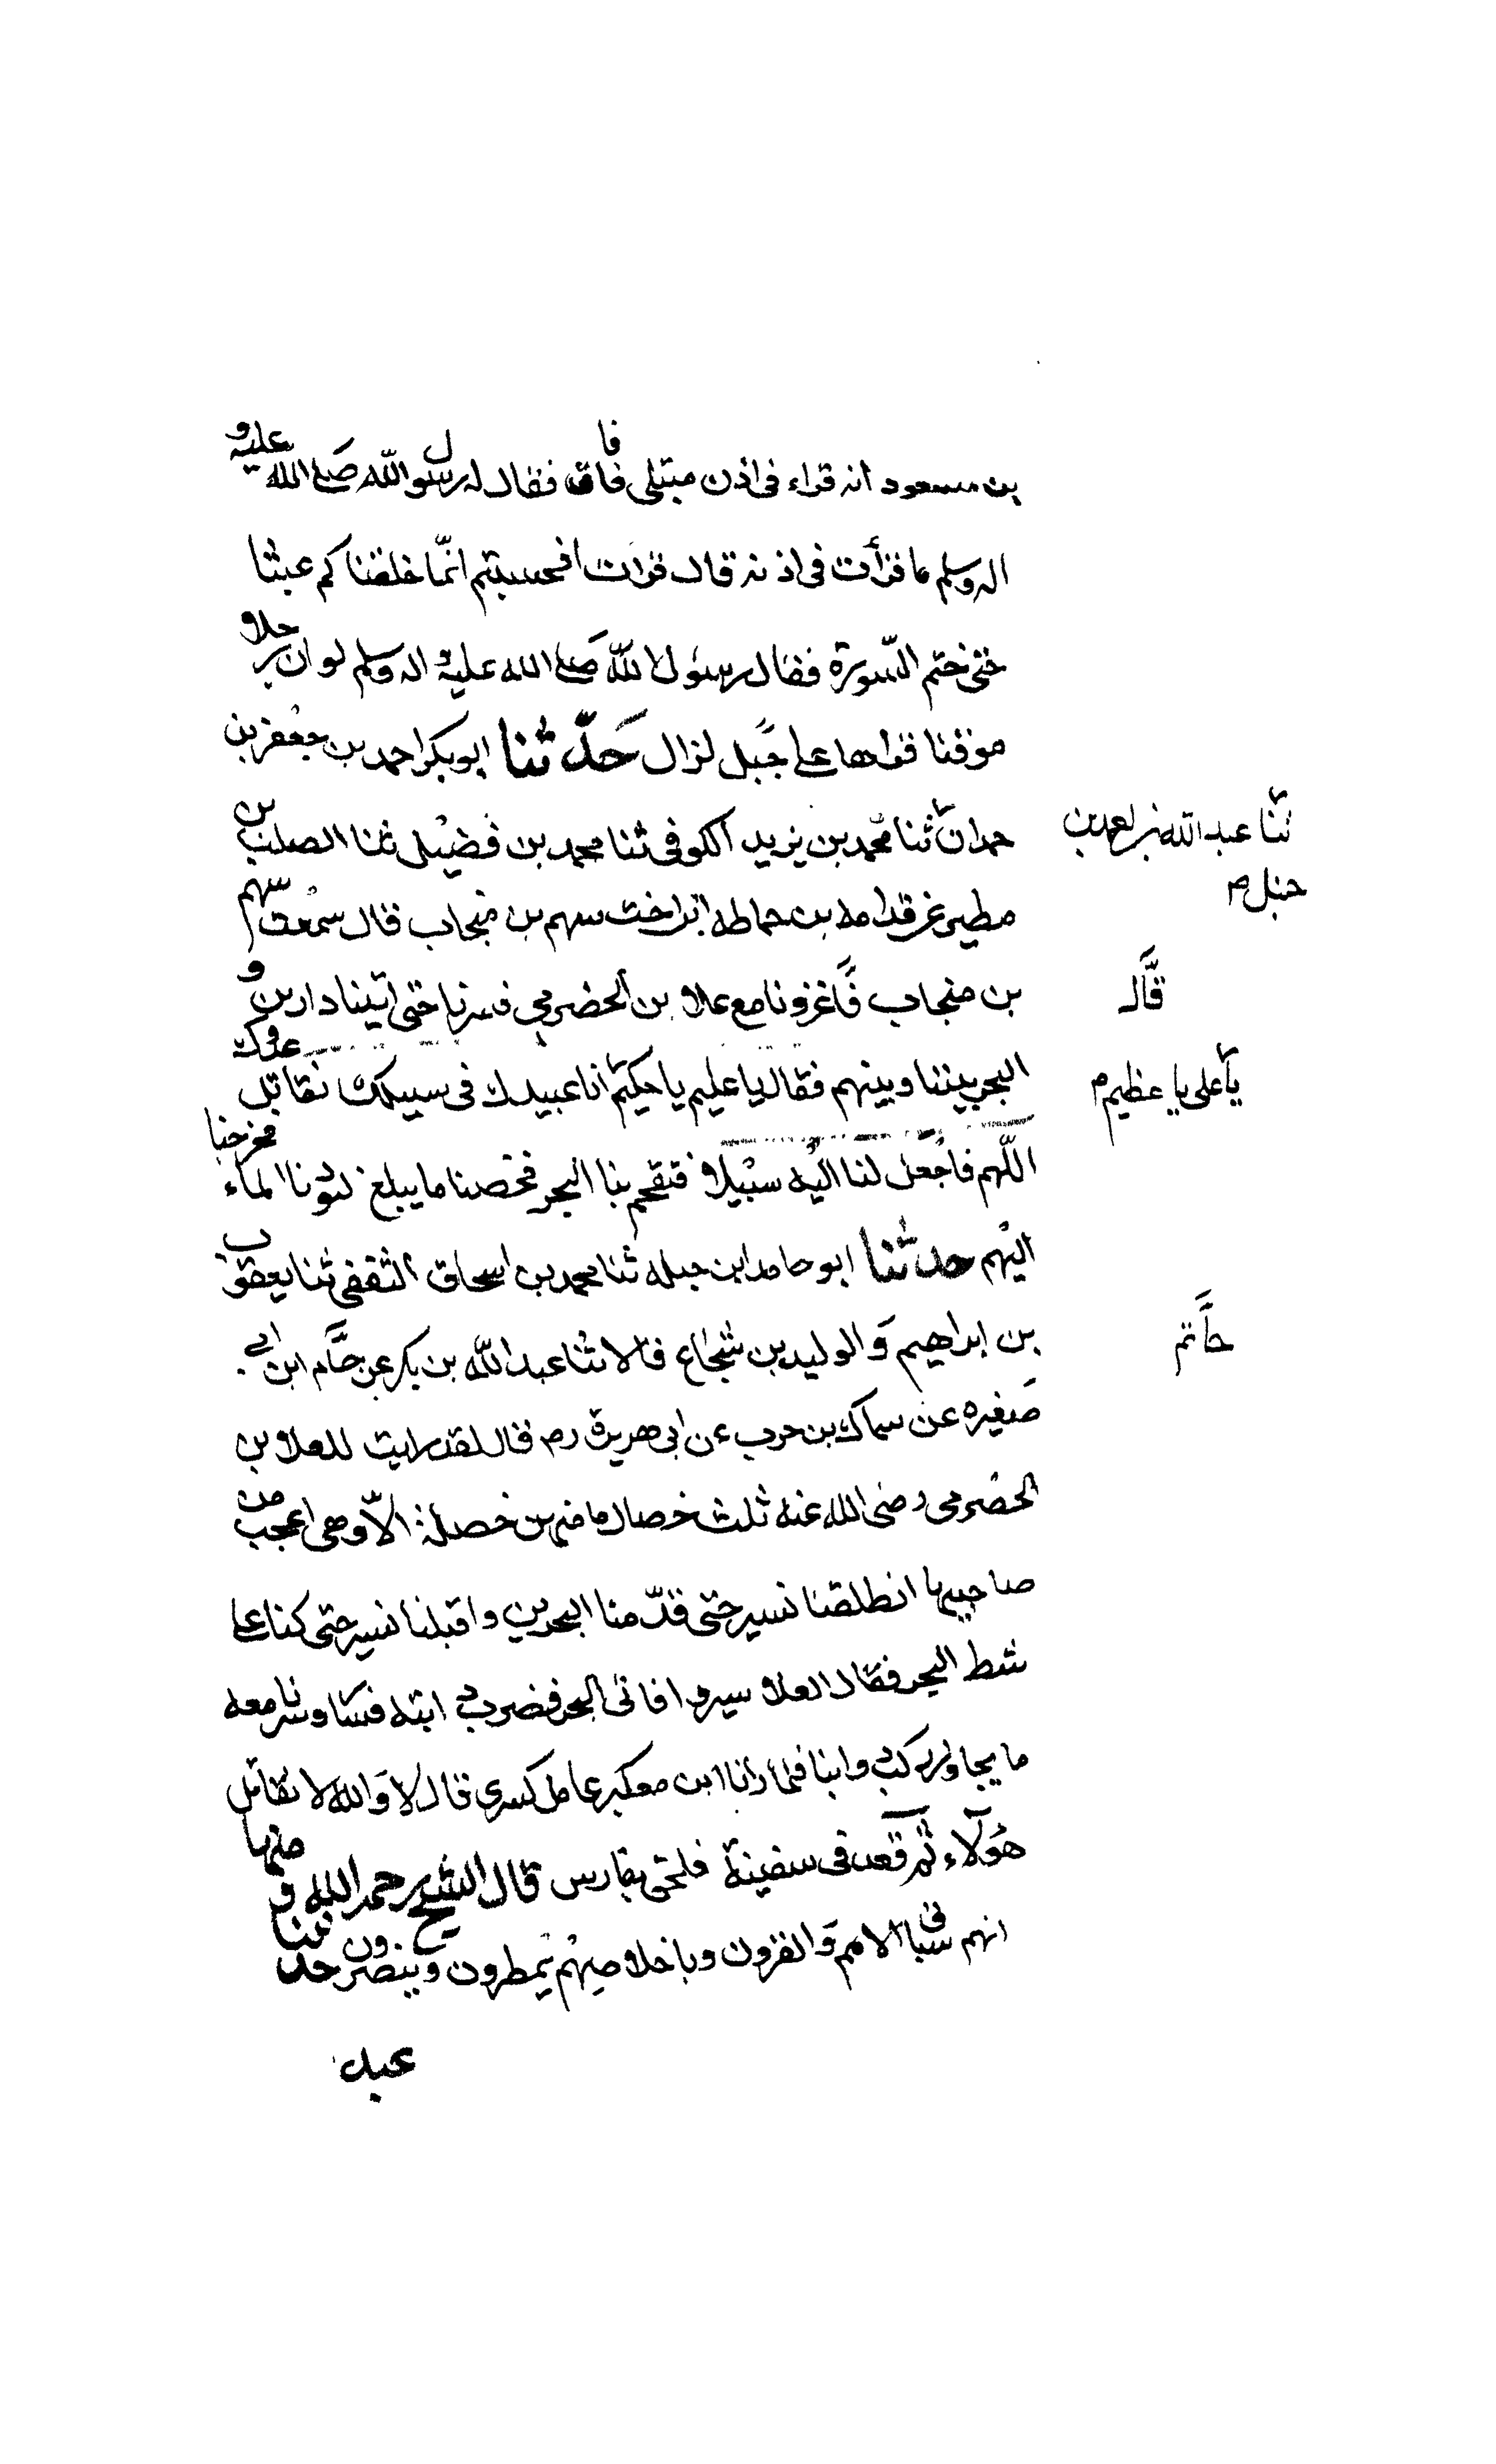 بن مسعود انه قراء فى اذن مبتلى فافاق فقال له رسول الله صلى الله عليه و
اله وسلم ما قرأت فى اذنه قال قرات افحسبتم انّما خلقناكم عبثا
حتى ختم السّورة فقال رسول الله صلى الله عليه و اله وسلم لو ان رجلا
موقنا قراها على جبل لزال حدّثنا ابو بكر احمد بن جعفر بن
حمدان ثنا محمد بن يزيد الكوفى ثنا محمد بن فضيل ثنا الصلت بن
ثنا عبد الله بن احمد بن
حنبل م
مطير عن قدامه بن حماطه ابن اخت سهم بن منجاب قال سمعت سهم
بن منجاب قال غزونا مع علا بن الحضرمى فسرنا حتى اتينا دارين و
قال
البحر بيننا وبينهم فقال يا عليم يا حكيم انا عبيدك فى سبيلك نقاتل عدوك
يا على يا عظيم م
اللّهم فاجعل لنا اليه سبيلا فتقحم بنا البحر فخضنا ما يبلغ لبودنا الماء فخرجنا
اليهم حدثنا ابو حامد ابن جبله ثنا محمد بن اسحاق الثقفى ثنا يعقوب
بن ابراهيم و الوليد بن شجاع قالا ثنا عبد الله بن بكر عن حاتم ابن ابى
حاتم
صغيره عن سماك بن حرب عن ابى هريرة رم قال لقد رايت للعلا بن
الحضرمى رضى الله عنه ثلث خصال ما منهن خصلة الّا وهى اعجب من
صاحبيها انطلقنا نسير حتى قدّمنا البحرين واقبلنا نسير حتى كنا على
شط البحر فقال العلا سيروا فاتى البحر فضرب دابته فسار وسرنا معه
ما يجاوز ركب دوابنا فلما رانا ابن معكبر عامل كسرى قال لا و الله لا نقاتل
هؤلاء ثم قعد فى سفينة فلحق بفارس قال الشيخ رحمه الله و منها
انهم سباق الامم و القرون وباخلاصهم يمطرون وينصرون حدثنا
عبد